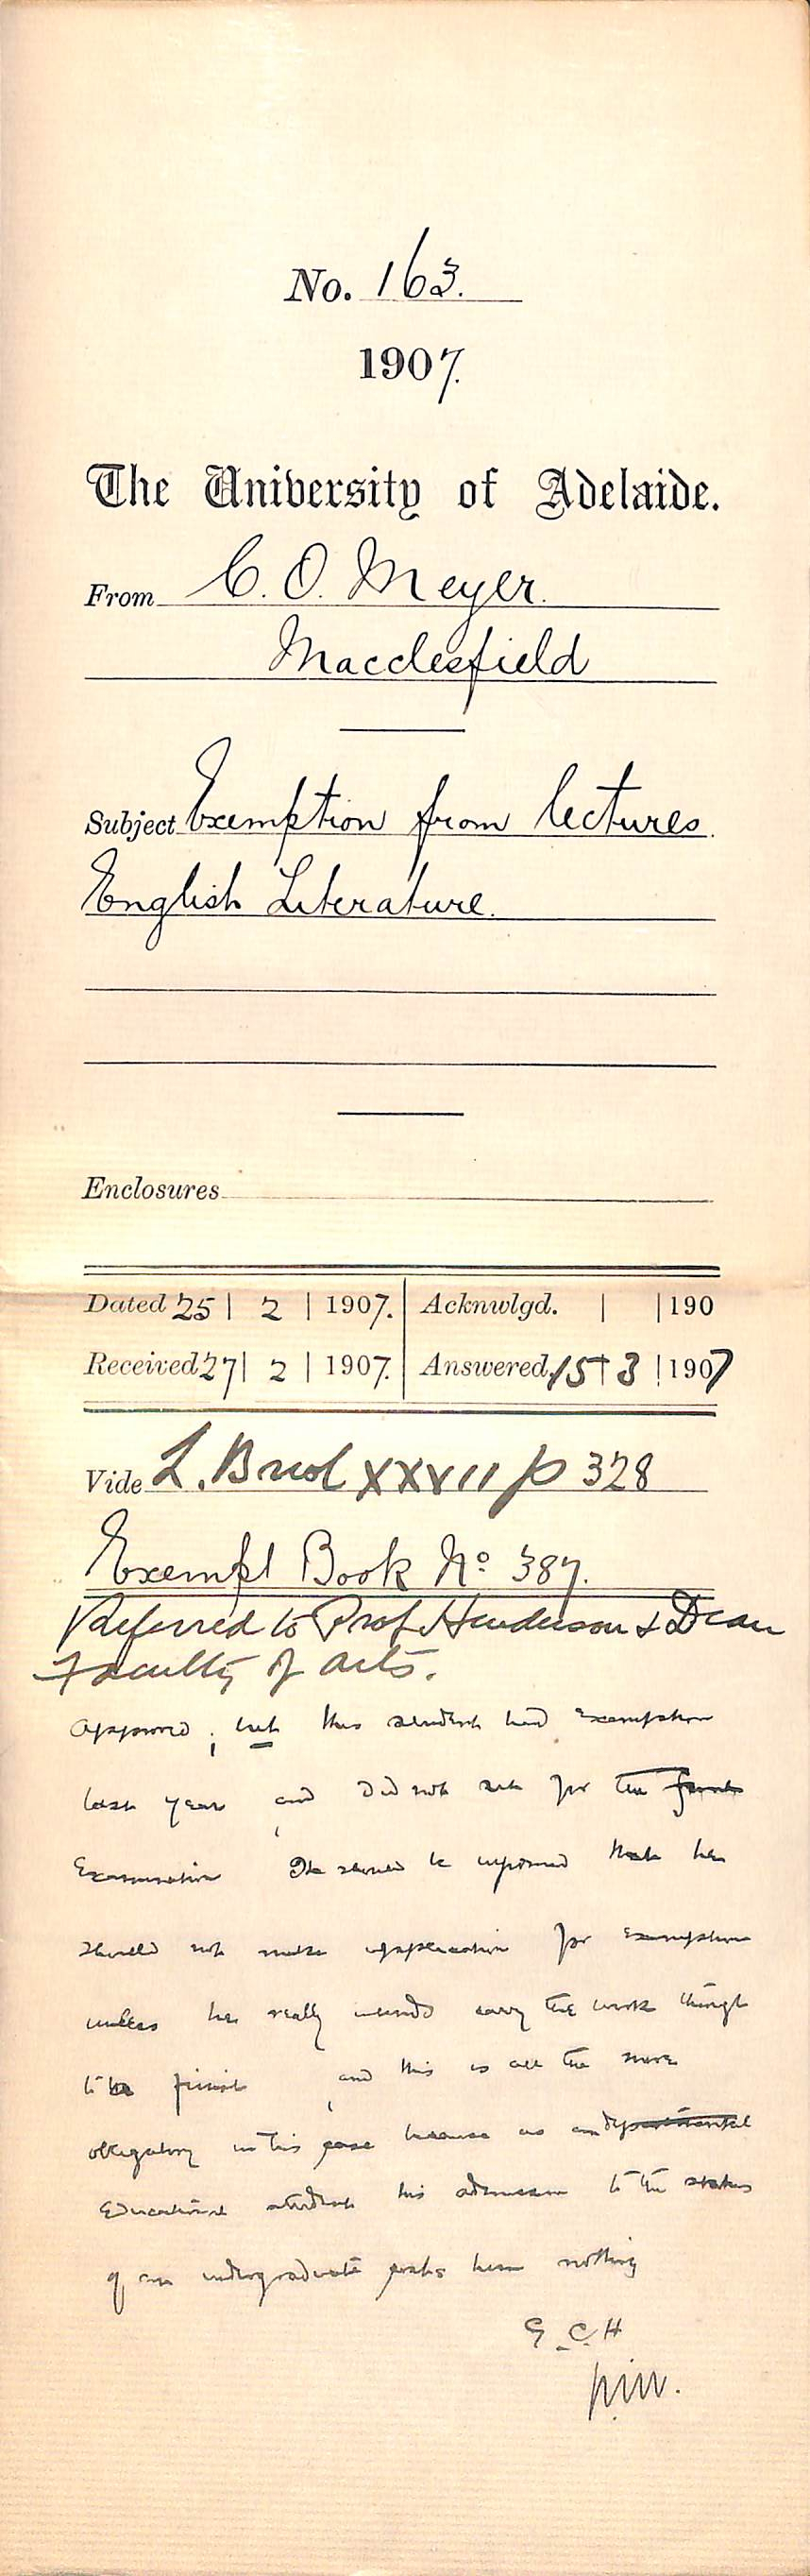 No. 163.
1907.
The University of Adelaide.
From C. O. Meyer.
Macclesfield
Subject Exemption from lectures.
English Literature.
Enclosures
Dated 25 | 2 | 1907. Acknwlgd. | | 190
Received 27 | 2 | 1907. Answered, 15 | 3 | 1907
Vide L. Book XXVII p 328
Exempt Book No 387.
Referred to Prof Henderson & Dean
Faculty of Arts.
Approved; but this student had exemption
last year and did not sit for the
Examination He should be informed that he
should not make application for exemption
unless he really intends carry the work through
to finish, and this is all the more
obligatory in this case because as an
Educational student his admission to the status
of an undergraduate costs him nothing
G C H